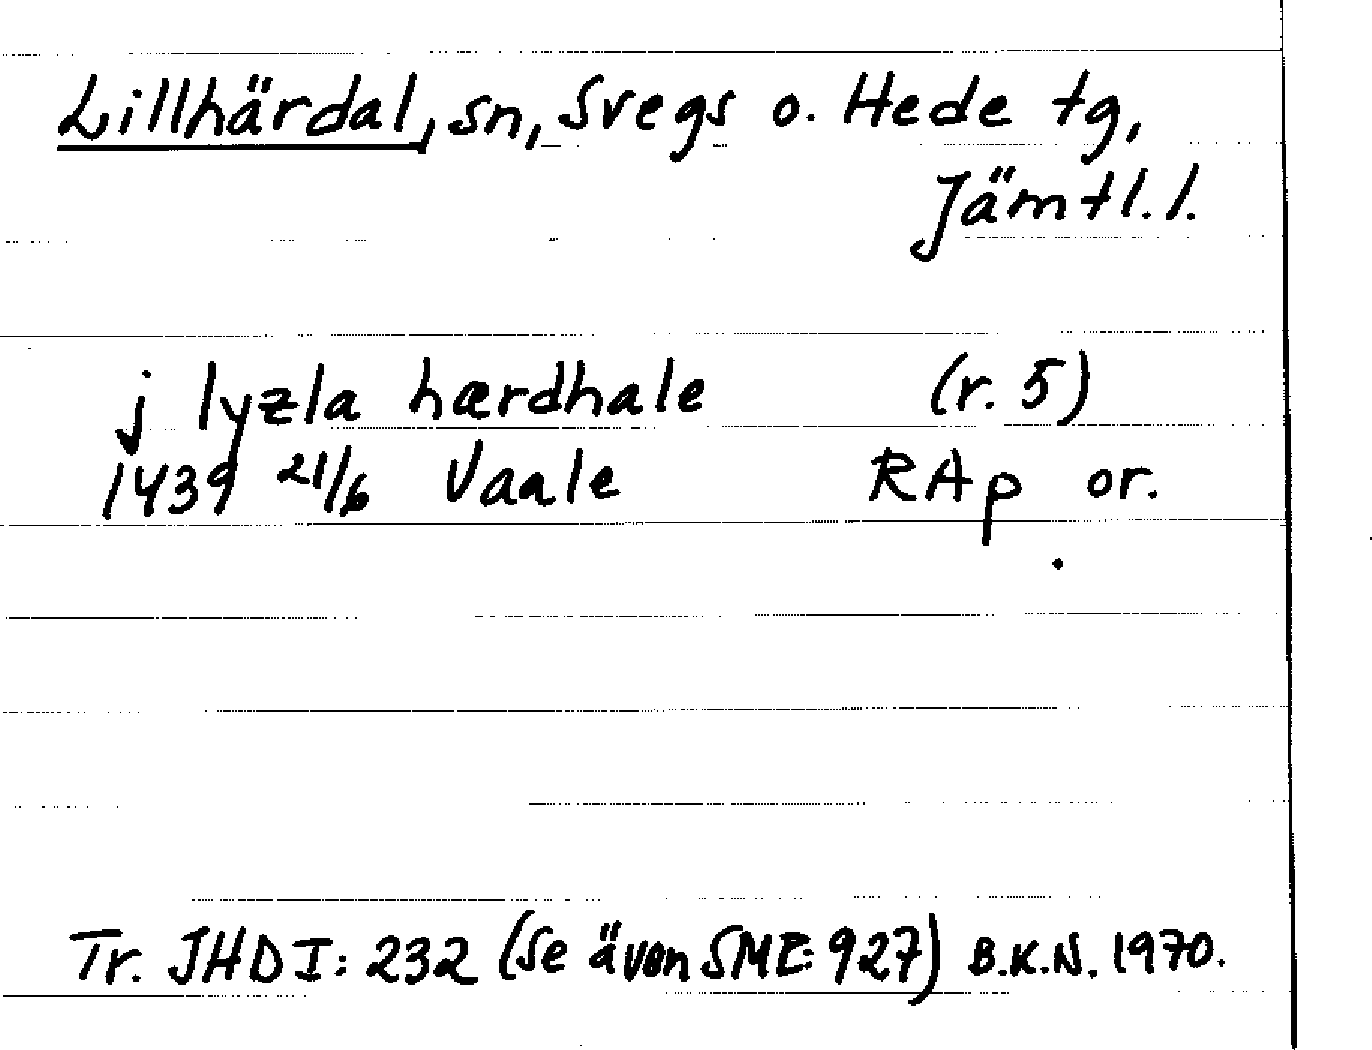 Lillhärdal, sn, Svegs o. Hede tg,
Jämtl. l.
j lyzla hærdhale (r. 5)
1439 21/6 Vaale RAp or.
Tr. JHD I: 232 (Se även SME: 927) B.K.N. 1970.